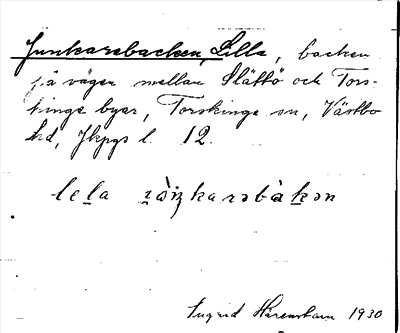 Junkarebacken, Lilla, backen
på vägen mellan Slättö och Tors-
kinge byar, Torskinge sn, Västbo
hd, Jkpgs l. 12.
lela
Ingrid Härenstam 1930